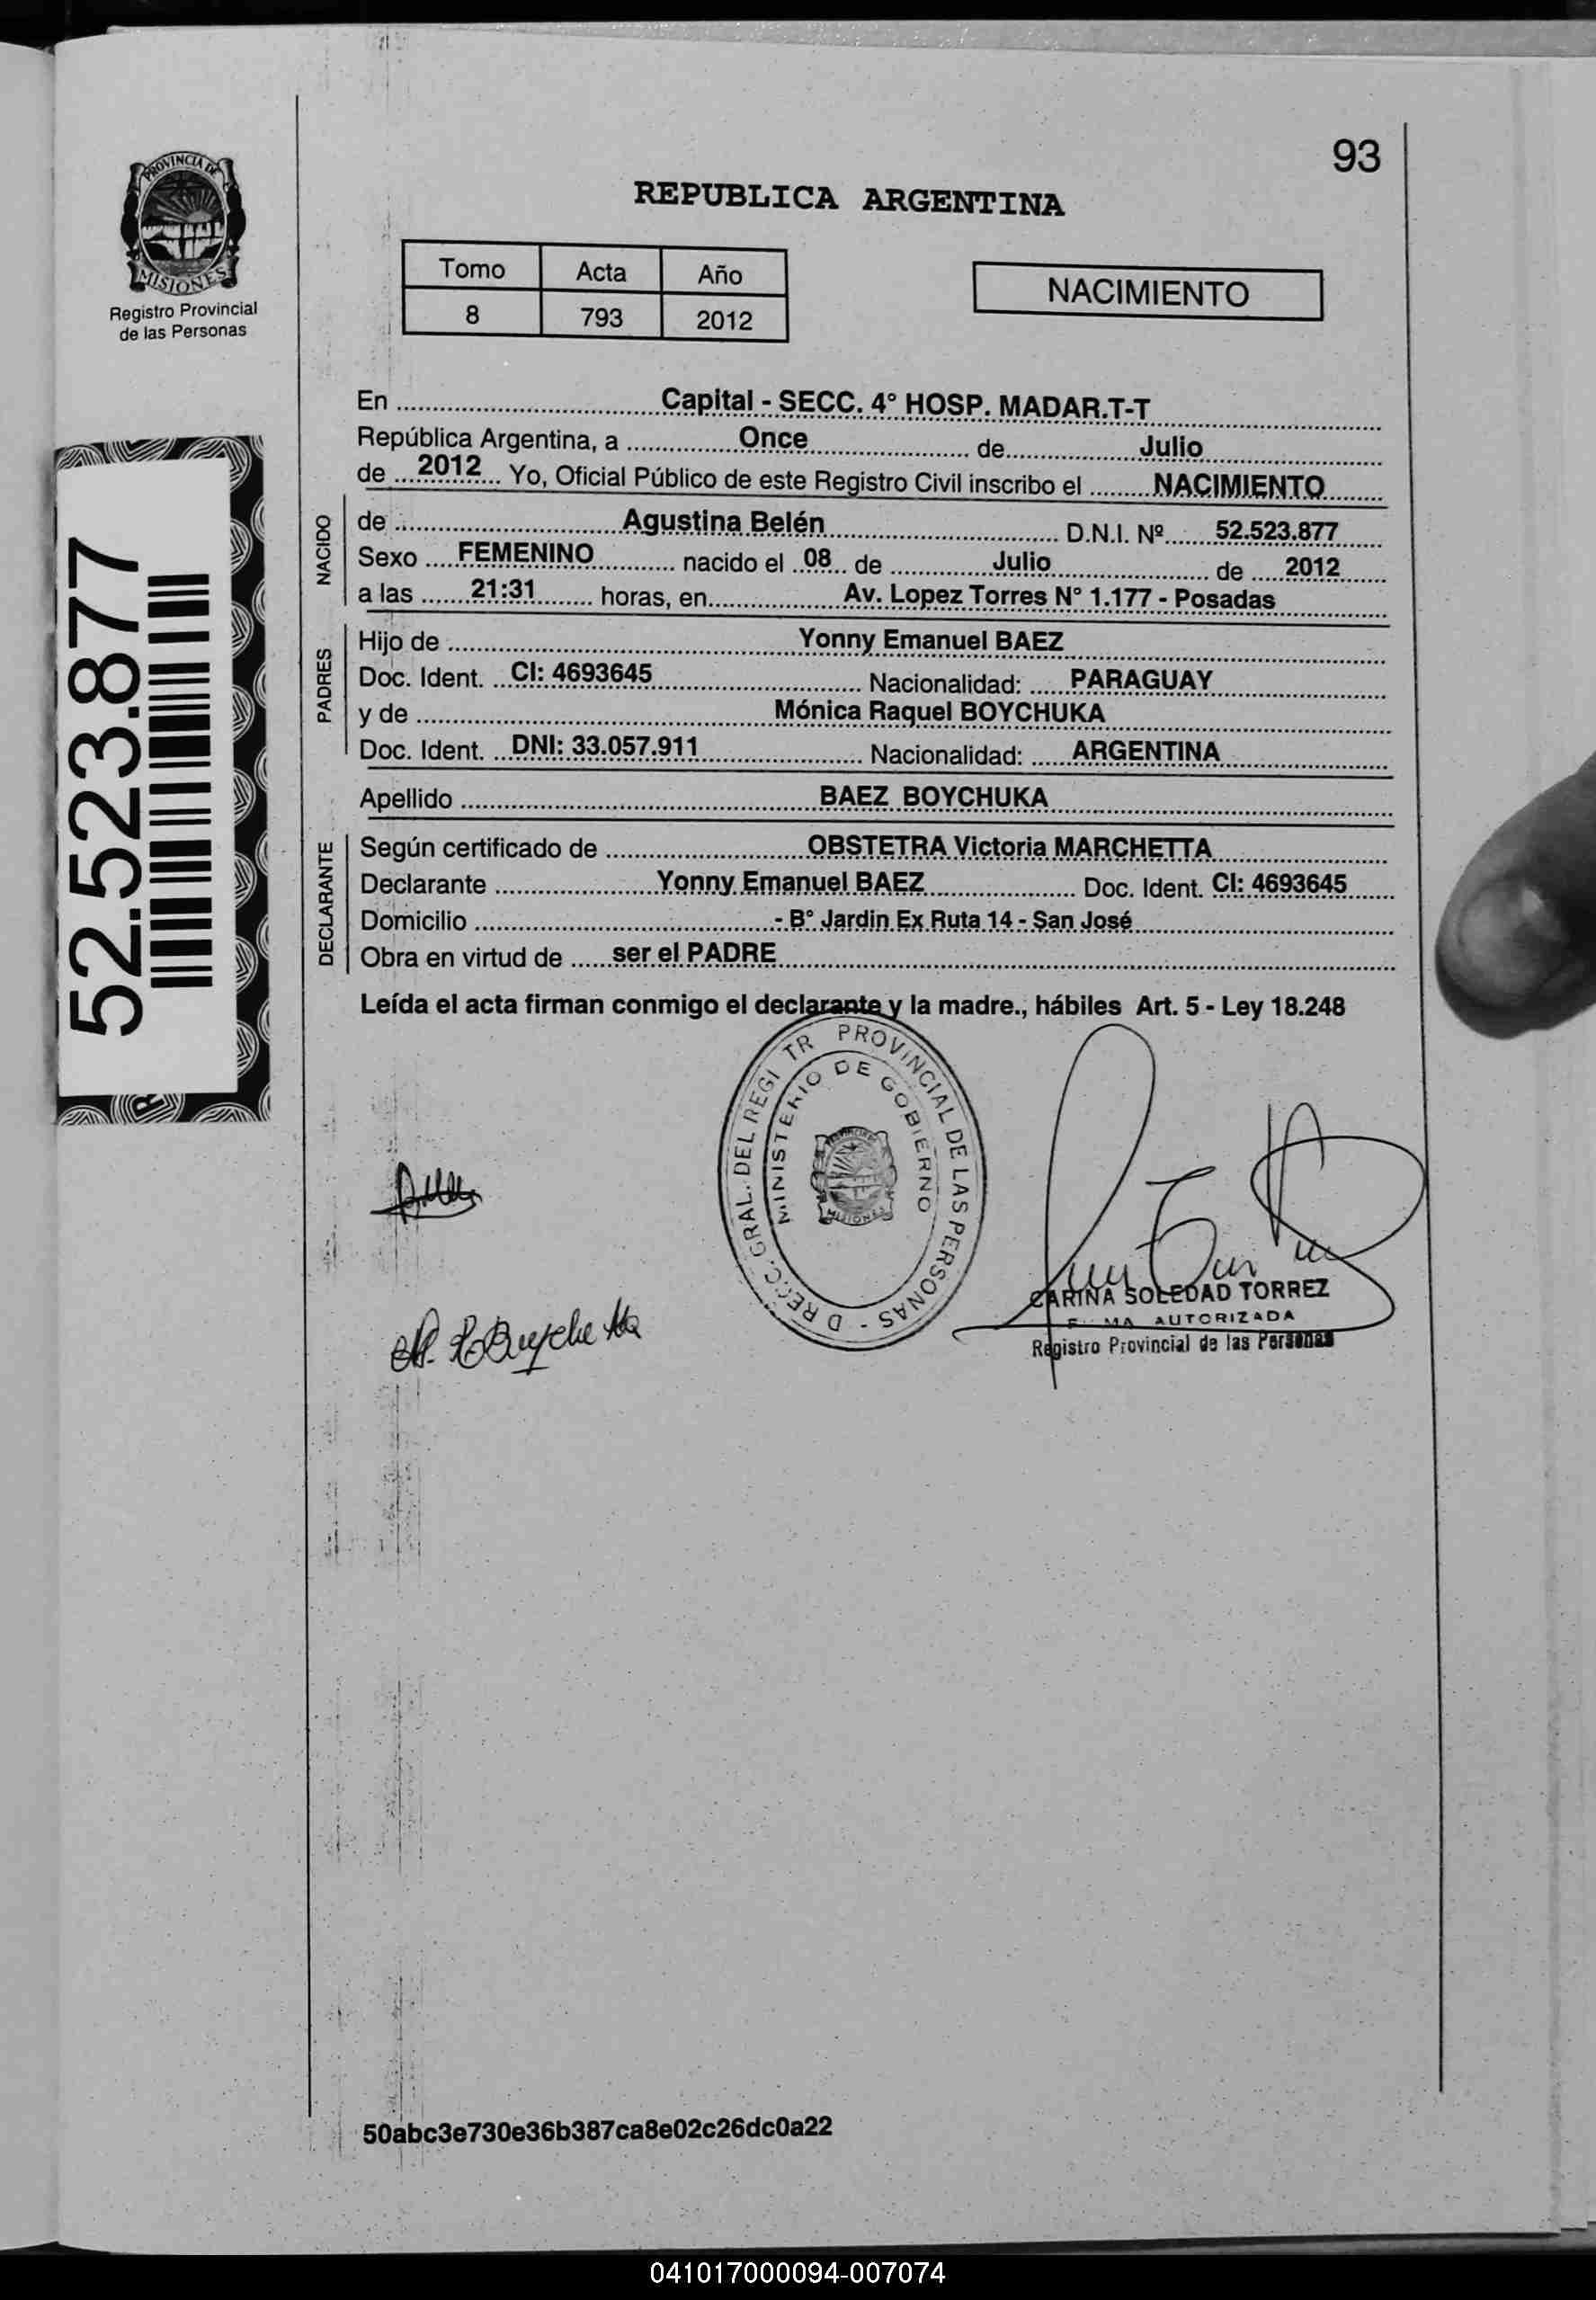 93
REPUBLICA ARGENTINA
PROVINCIA DE
MISIONES
Registro Provincial
de las Personas
Tomo Acta Año
8 793 2012
NACIMIENTO
En Capital - SECC. 4° HOSP. MADAR.T-T
República Argentina, a Once de Julio
de 2012 Yo, Oficial Público de este Registro Civil inscribo el NACIMIENTO
NACIDO
de Agustina Belén D.N.I. Nº 52.523.877
Sexo FEMENINO nacido el 08 de Julio de 2012
a las 21:31 horas, en Av. Lopez Torres N° 1.177 - Posadas
PADRES
Hijo de Yonny Emanuel BAEZ
Doc. Ident. CI: 4693645 Nacionalidad: PARAGUAY
y de Mónica Raquel BOYCHUKA
Doc. Ident. DNI: 33.057.911 Nacionalidad: ARGENTINA
Apellido BAEZ BOYCHUKA
DECLARANTE
Según certificado de OBSTETRA Victoria MARCHETTA
Declarante Yonny Emanuel BAEZ Doc. Ident. CI: 4693645
Domicilio - B° Jardin Ex Ruta 14 - San José
Obra en virtud de ser el PADRE
Leída el acta firman conmigo el declarante y la madre., hábiles Art. 5 - Ley 18.248
52.523.877
GRAL. DEL REGI TR PROVINCIAL DE LAS PERSONAS -
MINISTERIO DE GOBIERNO
MISIONES
CARINA SOLEDAD TORREZ
AUTORIZADA
Registro Provincial de las Personas
50abc3e730e36b387ca8e02c26dc0a22
041017000094-007074